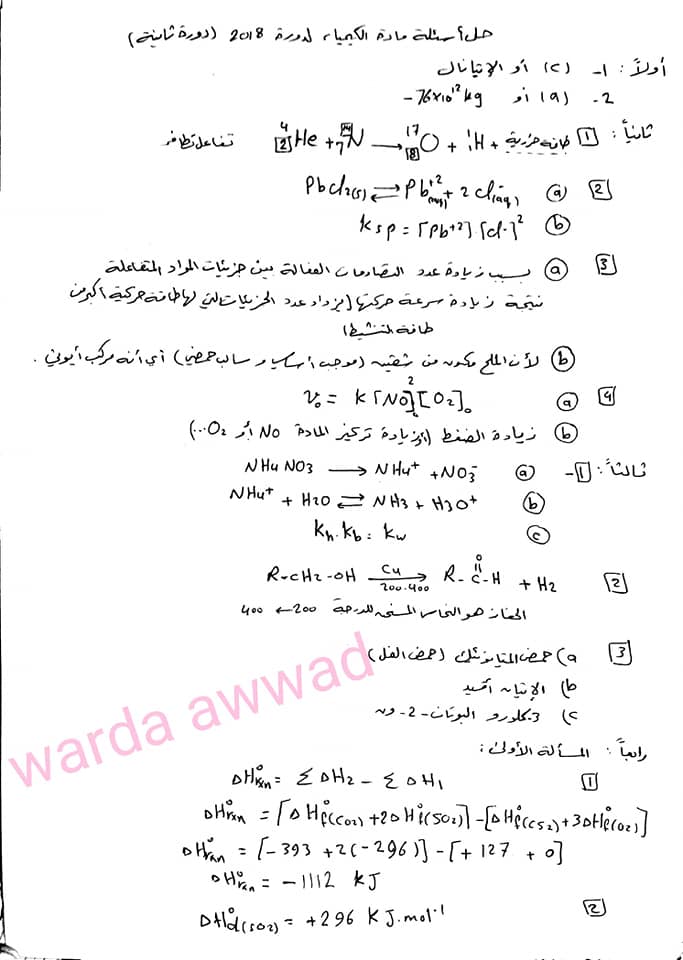 حل أسئلة مادة الكيمياء لدورة 2018 (دورة ثانية)
أولاً: 1- (c) أو الإيتانال
2- (a) أو -76×10¹² kg
ثانياً: 1 ⁴₂He + ¹⁴₇N → ¹⁷₈O + ¹₁H + طاقة حرارية تفاعل تطافر
2 a PbCl₂(s) ⇌ Pb⁺²(aq) + 2Cl⁻(aq)
b ksp = [Pb⁺²][cl⁻]²
3 a بسبب زيادة عدد التصادمات الفعالة بين جزيئات المواد المتفاعلة
نتيجة زيادة سرعة حركتها (يزداد عدد الجزيئات التي لها طاقة حركية أكبر من
طاقة التنشيط)
b لأن الملح مكون من شقين (موجب أساسي و سالب حمضي) أي أنه مركب أيوني.
4 a v₀ = k[NO]²₀[O₂]₀
b زيادة الضغط (أو زيادة تركيز المادة NO أو O₂ ...)
ثالثاً: 1- a NH₄NO₃ → NH₄⁺ + NO₃⁻
b NH₄⁺ + H₂O ⇌ NH₃ + H₃O⁺
c Kh.Kb = Kw
2 R-CH₂-OH Cu 200-400 → R-C(=O)-H + H₂
الحفاز هو النحاس المسخن للدرجة 200 → 400
3 a) حمض الميتانوئيك (حمض النمل)
b) الإيتان أميد
c) 3-كلورو البوتان-2-ون
رابعاً: المسألة الأولى:
1 ΔH°rxn = ΣΔH₂ - ΣΔH₁
ΔH°rxn = [ΔH°f(CO₂) + 2ΔH°f(SO₂)] - [ΔH°f(CS₂) + 3ΔH°f(O₂)]
ΔH°rxn = [-393 + 2(-296)] - [+127 + 0]
ΔH°rxn = -1112 kJ
2 ΔH°d(SO₂) = +296 KJ.mol⁻¹
warda awwad